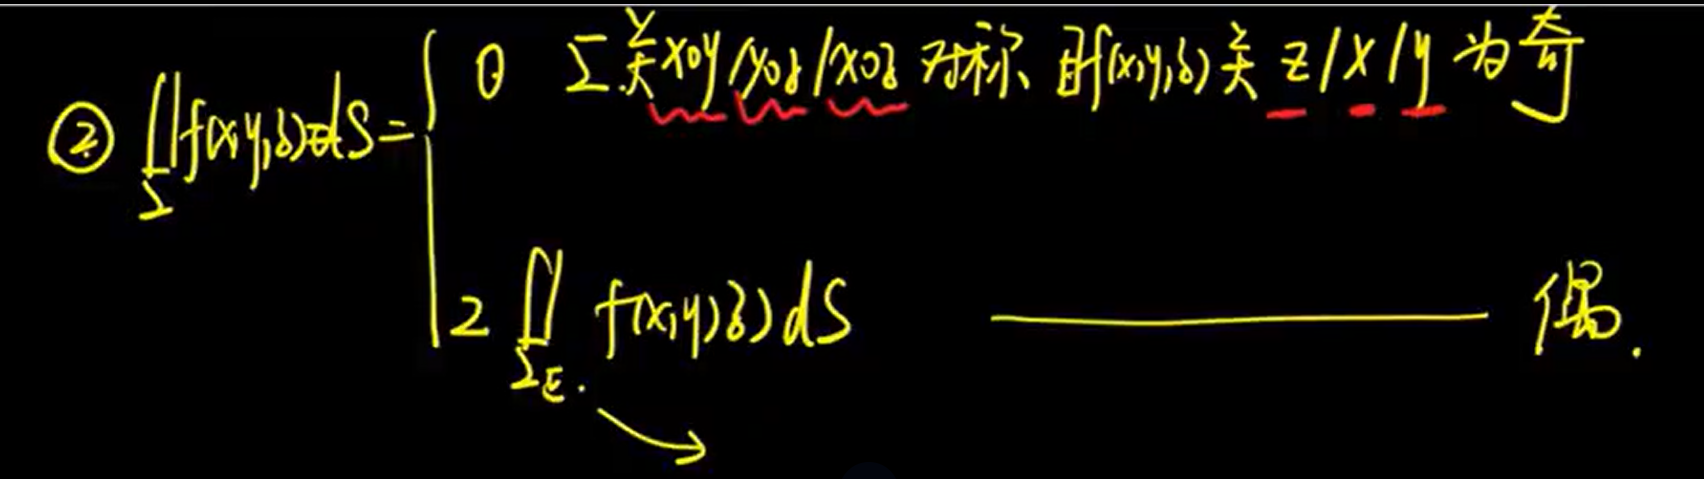 ② ∬_Σ f(x,y,z)dS = { 0 Σ关于xoy/yoz/xoz对称 且f(x,y,z)关于z/x/y为奇
2∬_Σ f(x,y,z)dS —— 偶.